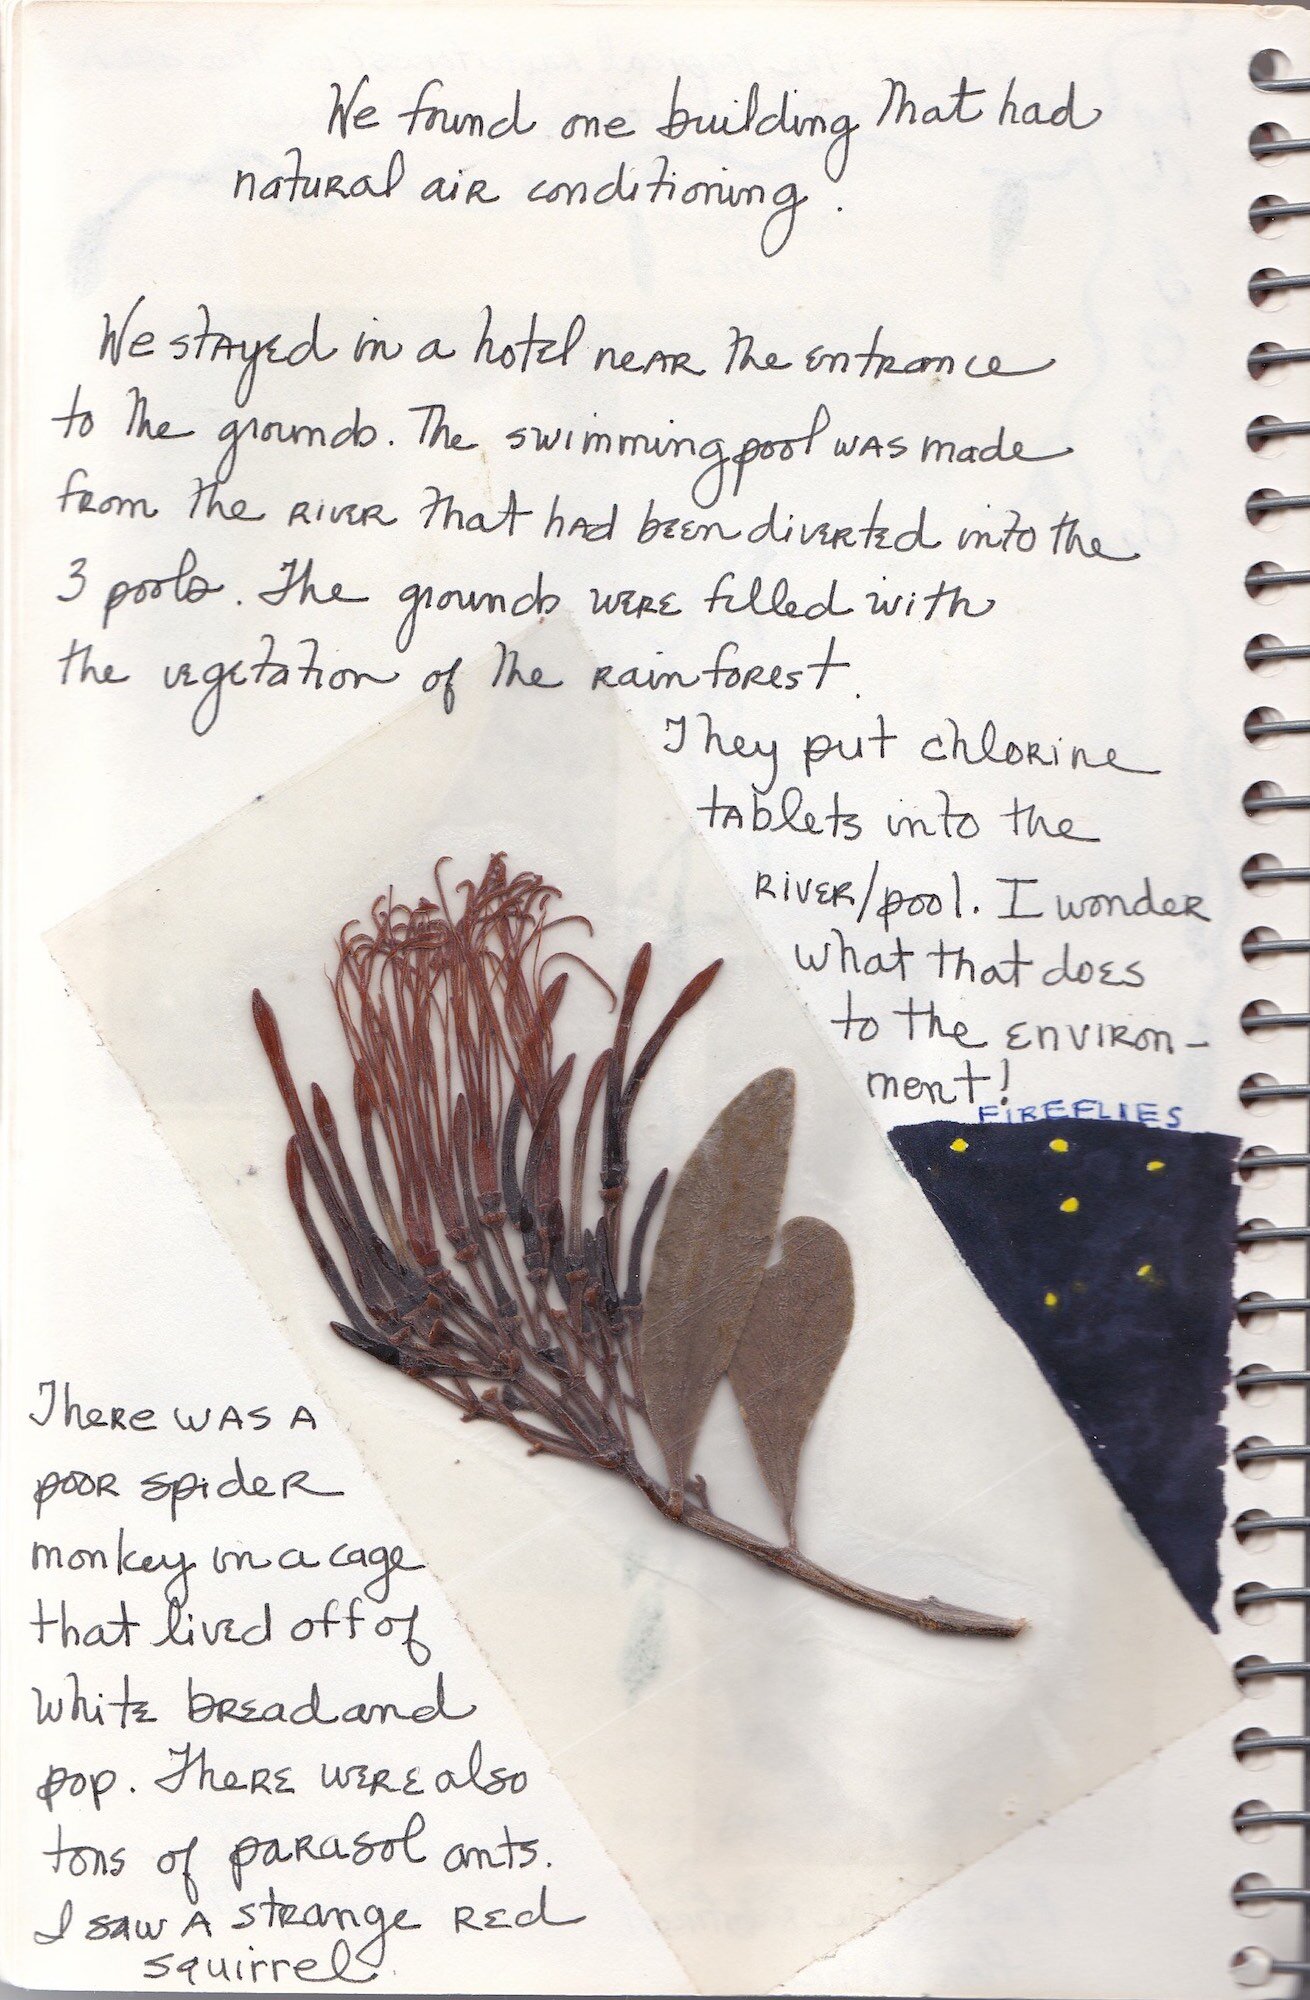 We found one building that had
natural air conditioning.
We stayed in a hotel near the entrance
to the grounds. The swimming pool was made
from the river that had been diverted into the
3 pools. The grounds were filled with
the vegetation of the rainforest.
They put chlorine
tablets into the
river/pool. I wonder
what that does
to the environ-
ment!
FIREFLIES
There was a
poor spider
monkey in a cage
that lived off of
white bread and
pop. There were also
tons of parasol ants.
I saw a strange red
squirrel.